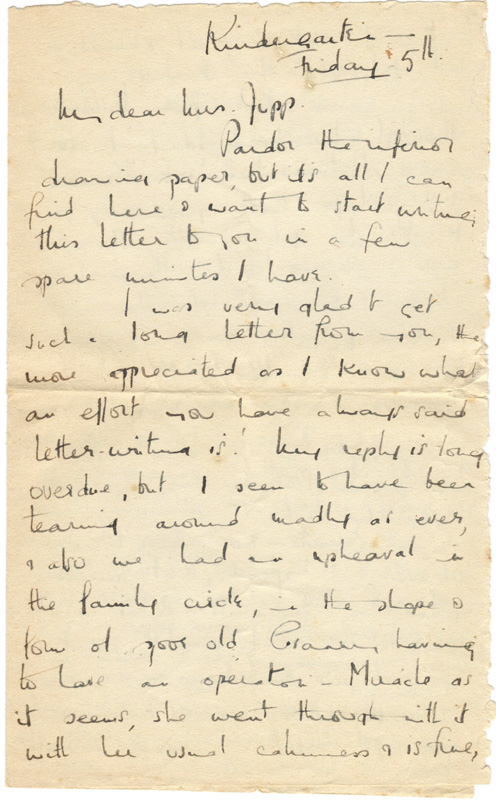 Kindergarten —
Friday 5th.
My dear Mrs. Jupp.
Pardon the inferior
drawing paper, but it's all I can
find here & want to start writing
this letter to you in a few
spare minutes I have.
I was very glad to get
such a long letter from you, the
more appreciated as I know what
an effort you have always said
letter-writing is! My reply is long
overdue, but I seem to have been
tearing around madly as ever,
& also we had an upheaval in
the family circle, in the shape &
form of poor old Granny having
to have an operation — Miracle as
it seems, she went through with it
with her usual calmness & is fine,